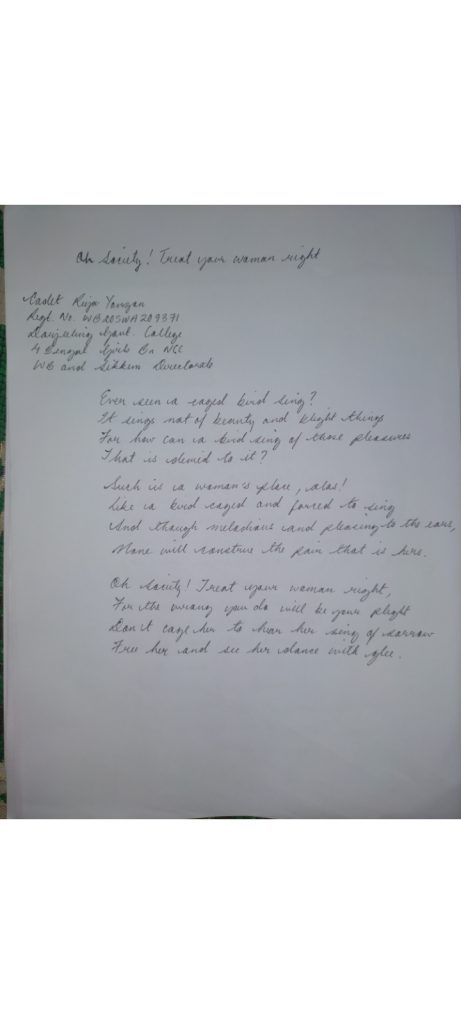 Oh Society! Treat your woman right
Cadet Rija Yonzon
Regt. No. WB20SWA209371
Darjeeling Govt. College
4 Bengal Girls Bn NCC
WB and Sikkim Directorate
Ever seen a caged bird sing?
It sings not of beauty and bright things
For how can a bird sing of those pleasures
That is denied to it?
Such is a woman's place, alas!
Like a bird caged and forced to sing
And though melodious and pleasing to the ears,
None will construe the pain that is hers.
Oh Society! Treat your woman right,
For the wrong you do will be your plight
Don't cage her to hear her sing of sorrow
Free her and see her dance with glee.